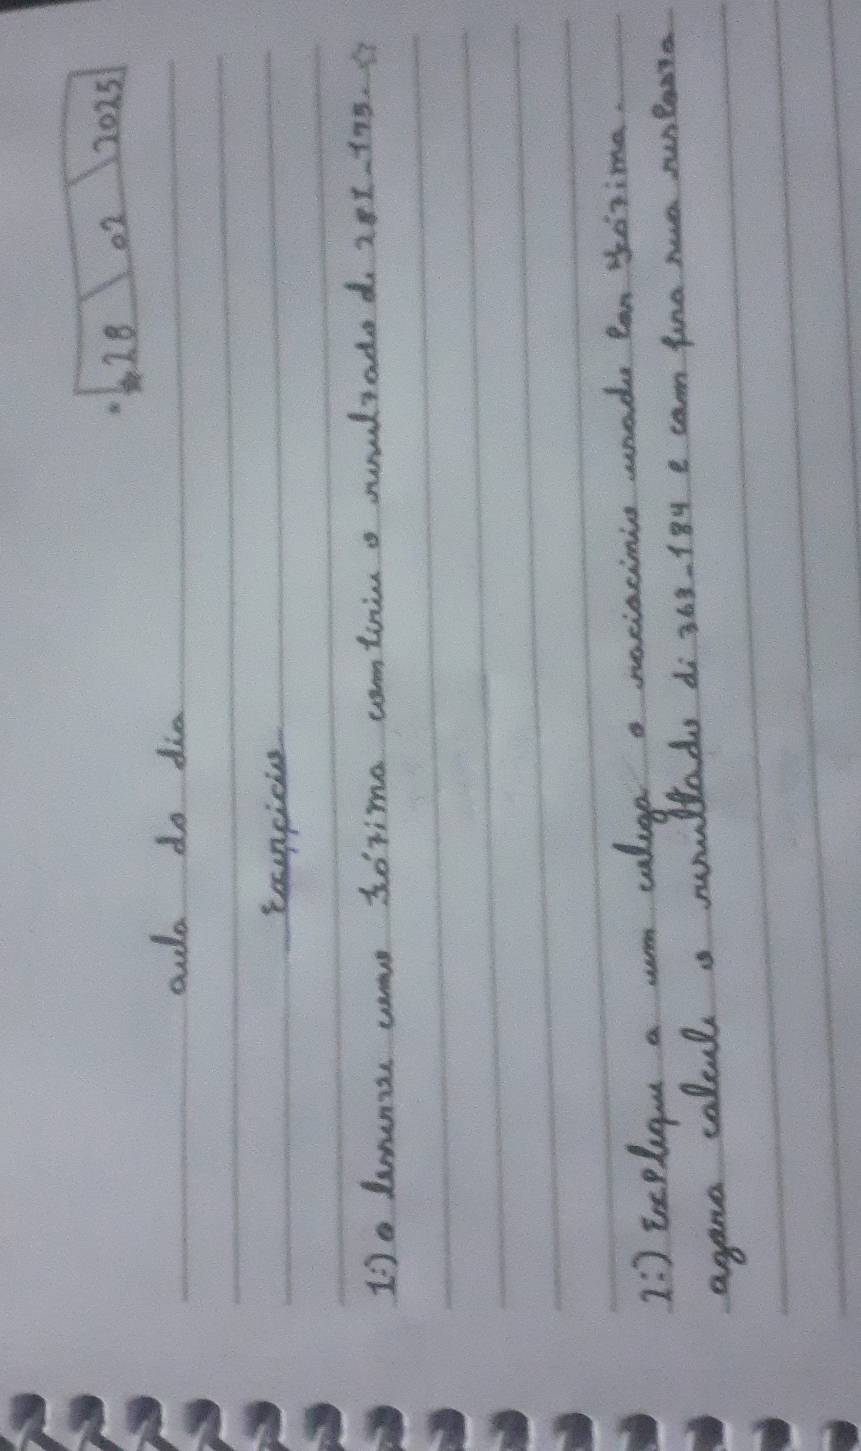 28 \ 02 \ 2025
aula do dia
Exercício
1:) o como Fátima o resultado de 281-175.
2:) Explique a um colega o raciocinio usado por Fátima.
agora calcule o resultado di 363-184 e com sua resposta